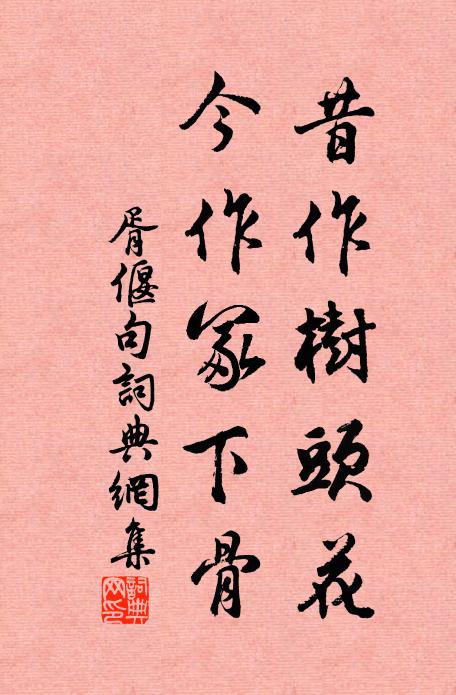 昔作樹頭花
今作冢下骨
胥偃句詞典網集
詞典网印